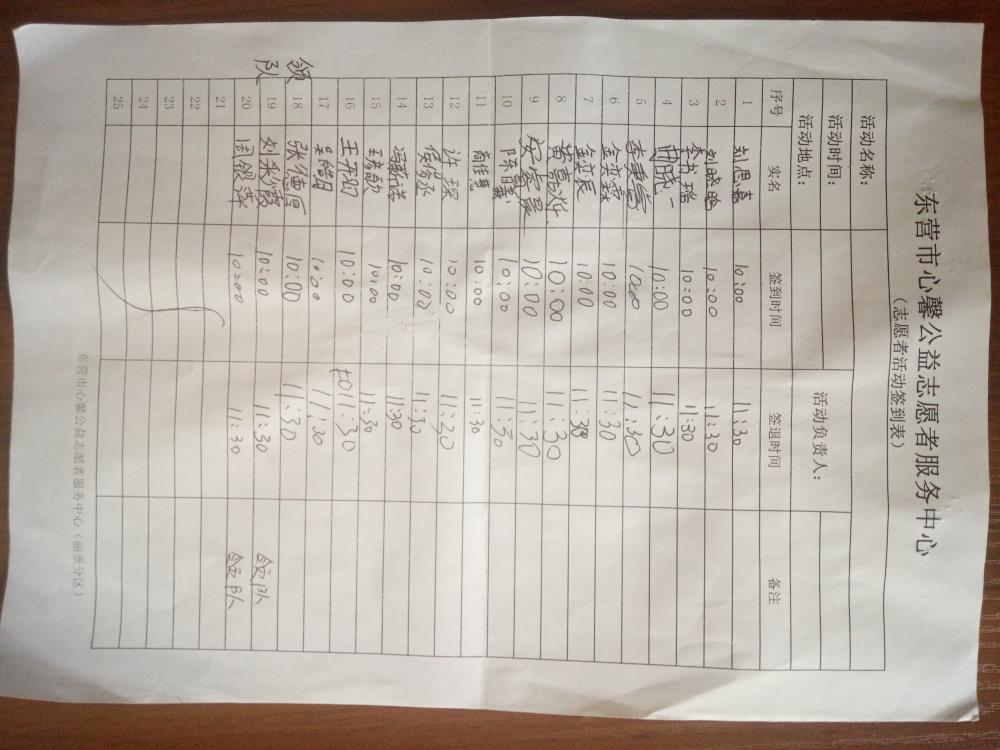 东营市心馨公益志愿者服务中心
（志愿者活动签到表）
活动名称：
活动时间： 活动负责人：
活动地点：
序号 实名 签到时间 签退时间 备注
1 刘思嘉 10:00 11:30
2 刘晓晗 10:00 11:30
3 李书瑶 10:00 11:30
4 曲晓一 10:00 11:30
5 10:00 11:30
6 金奕霖 10:00 11:30
7 金奕辰 10:00 11:30
8 黄嘉烨 10:00 11:30
9 10:00 11:30
10 陈曦 10:00 11:30
11 商佳慧 10:00 11:30
12 许琛 10:00 11:30
13 侯俊丞 10:00 11:30
14 冯薪诺 10:00 11:30
15 10:00 11:30
16 王开勋 10:00 11:30
17 吴皓月 10:00 11:30
18 张德恒 10:00 11:30
领队
19 刘彩霞 10:00 11:30 领队
20 周银萍 10:00 11:30 领队
21
22
23
24
25
东营市心馨公益志愿者服务中心（丽景分区）